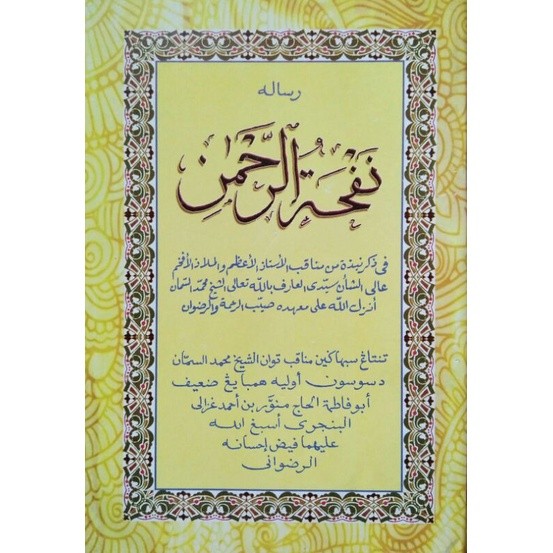 رساله
نفحة الرحمن
فى ذكر نبذة من مناقب الأستاذ الأعظم والملاذ الأفخم
عالى الشأن سيدى العارف بالله تعالى الشيخ محمد السمان
أنزل الله على معهده صيّب الرحمة والرضوان
تنتاڠ سبهاڬين مناقب توان الشيخ محمد السمّان
دسوسون أوليه همباىڠ ضعيف
أبو فاطمة الحاج منوّر بن أحمد غزالى
البنجرى أسبغ الله
عليهما فيض إحسانه
الرضوانى